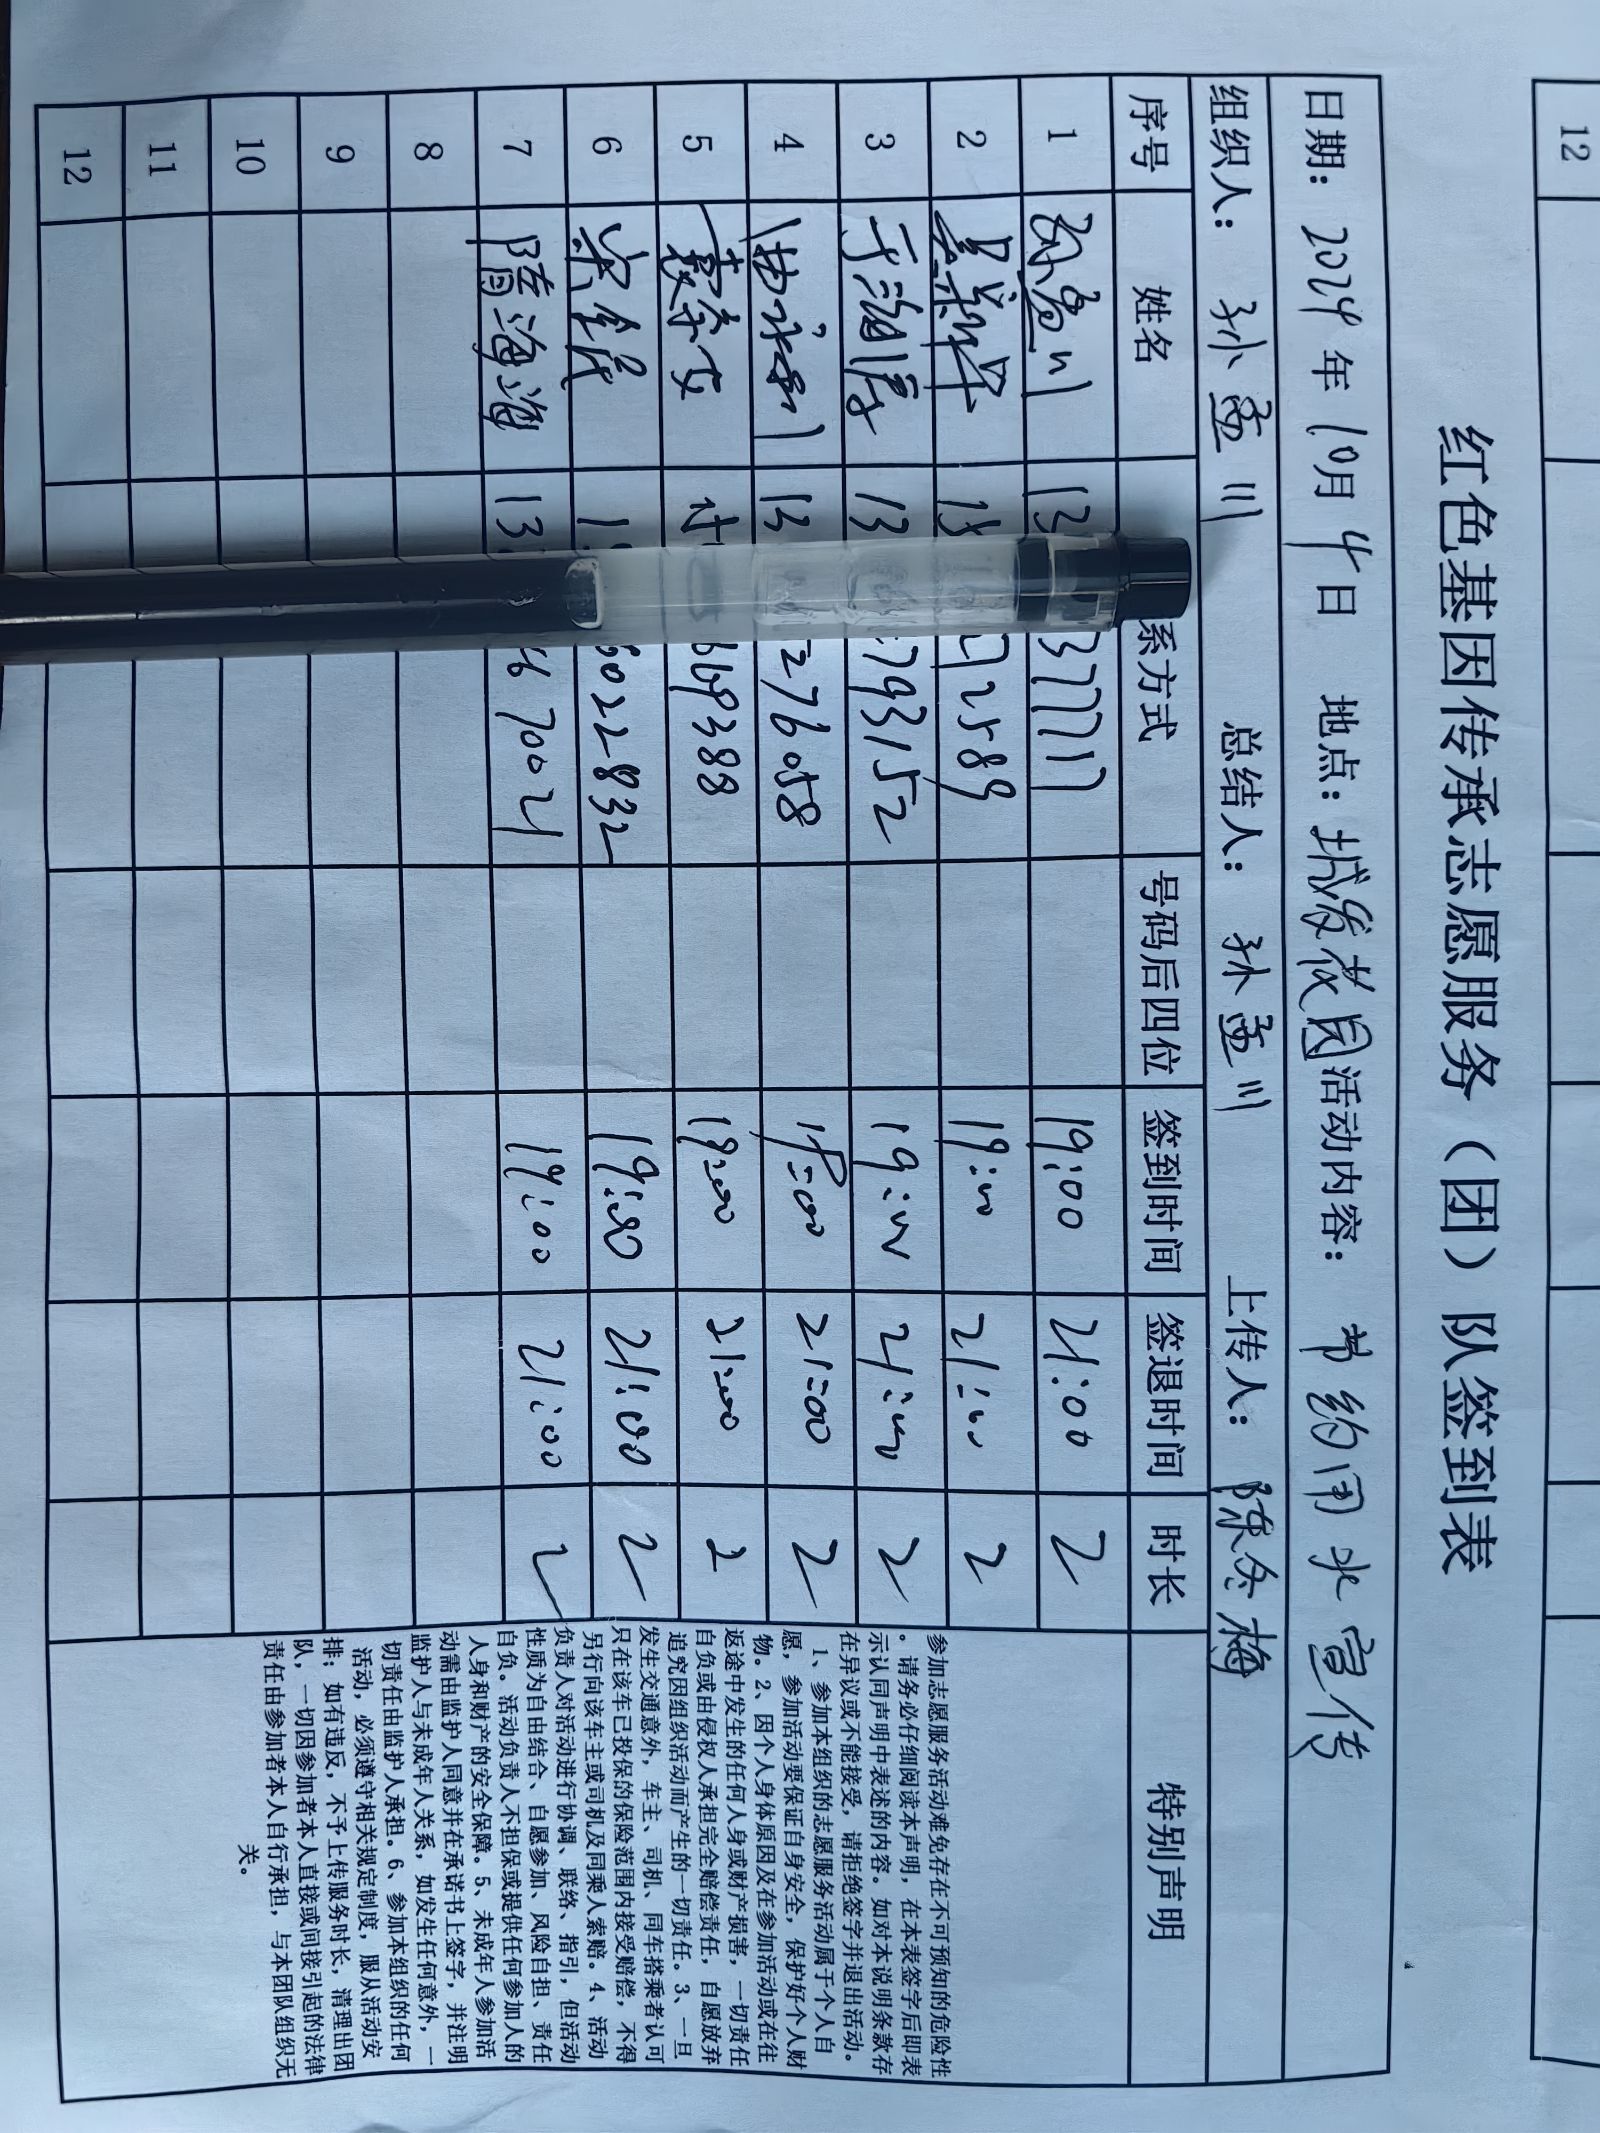 12
红色基因传承志愿服务（团）队签到表
日期：2024年10月4日 地点：城发花园 活动内容：节约用水宣传
组织人：孙孟川 总结人：孙孟川 上传人：陈冬梅
序号 姓名 系方式 号码后四位 签到时间 签退时间 时长 特别声明
1 孙孟川 13 37717 19:00 21:00 2
2 15 72589 19:00 21:00 2
3 于海霞 13 793152 19:00 21:00 2
4 曲承刚 13 276058 19:00 21:00 2
5 669388 19:00 21:00 2
6 6022832 19:00 21:00 2
7 隋海海 13 6670021 19:00 21:00 2
8
9
10
11
12
参加志愿服务活动难免存在不可预知的危险性
。请务必仔细阅读本声明，在本表签字后即表
示认同声明中表述的内容。如对本说明条款存
在异议或不能接受，请拒绝签字并退出活动。
1、参加本组织的志愿服务活动属于个人自
愿，参加活动要保证自身安全，保护好个人财
物。2、因个人身体原因及在参加活动或在往
返途中发生的任何人身或财产损害，一切责任
自负或由侵权人承担完全赔偿责任，自愿放弃
追究因组织活动而产生的一切责任。3、一旦
发生交通意外，车主、司机、同车搭乘者认可
只在该车已投保的保险范围内接受赔偿，不得
另行向该车主或司机及同乘人索赔。4、活动
负责人对活动进行协调、联络、指引，但活动
性质为自由结合、自愿参加、风险自担、责任
自负。活动负责人不担保或提供任何参加人的
人身和财产的安全保障。5、未成年人参加活
动需由监护人同意并在承诺书上签字，并注明
监护人与未成年人关系，如发生任何意外，一
切责任由监护人承担。6、参加本组织的任何
活动，必须遵守相关规定制度，服从活动安
排；如有违反，不予上传服务时长，清理出团
队，一切因参加者本人直接或间接引起的法律
责任由参加者本人自行承担，与本团队组织无
关。